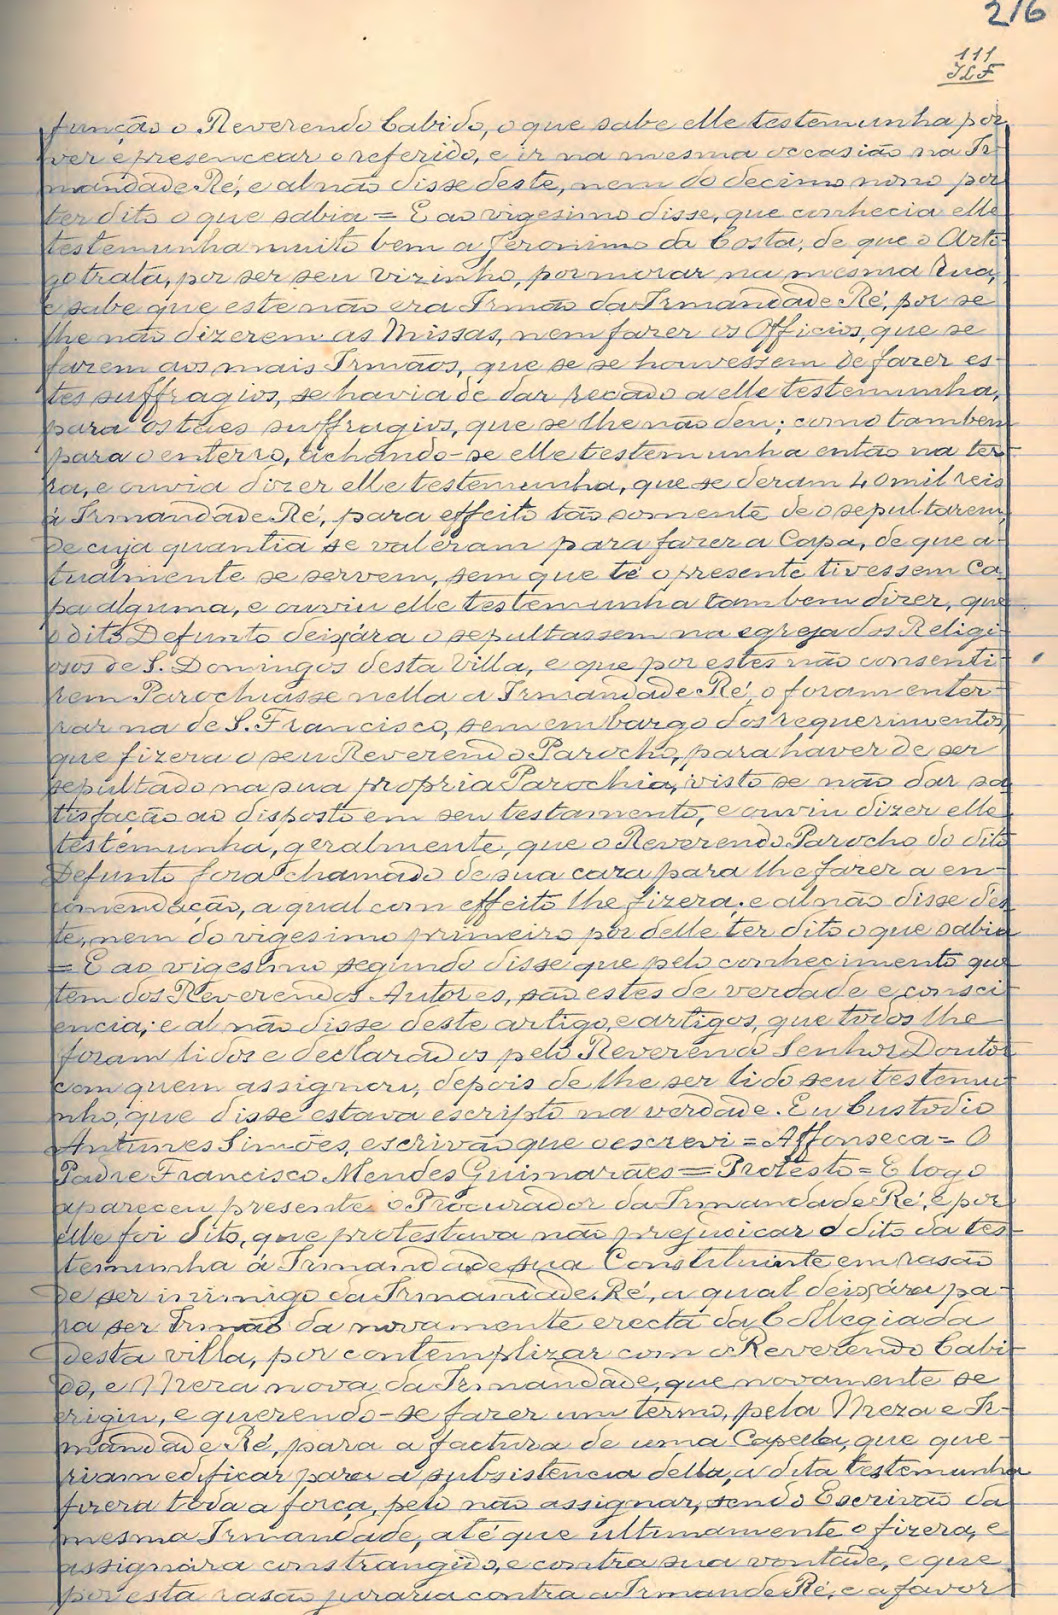 216
111
função o Reverendo Cabido, o que sabe elle testemunha por
ver e presencear o referido, e ir na mesma occasião na Ir-
mandade Ré, e al não disse deste, nem do decimo nono por
ter dito o que sabia = E ao vigesimo disse, que conhecia elle
testemunha muito bem a Jeronimo da Costa, de que o Arti-
go trata, por ser seu vizinho, por morar na mesma Rua,
e sabe que este não era Irmão da Irmandade Ré, por se
lhe não dizerem as Missas, nem fazer os Officios, que se
fazem aos mais Irmãos, que se se houvessem de fazer es-
tes suffragios, se havia de dar recado a elle testemunha,
para os taes suffragios, que se lhe não deu; como tambem
para o enterro, achando-se elle testemunha então na ter-
ra, e ouvia dizer elle testemunha, que se deram 40 mil reis
á Irmandade Ré, para effeito tão somente de o sepultarem,
de cuja quantia se valeram para fazer a Capa, de que a-
tualmente se servem, sem que té o presente tivessem Ca-
pa alguma, e ouviu elle testemunha tambem dizer, que
o dito Defunto deixára o sepultassem na egreja dos Religi-
osos de S. Domingos desta Villa, e que por estes não consenti-
rem Parochiasse nella a Irmandade Ré, o foram enter-
rar na de S. Francisco, sem embargo dos requerimentos,
que fizera o seu Reverendo Parocho, para haver de ser
sepultado na sua propria Parochia, visto se não dar sa-
tisfação ao disposto em seu testamento, e ouviu dizer elle
testemunha, geralmente, que o Reverendo Parocho do dito
Defunto fora chamado de sua caza para lhe fazer a en-
comendação, a qual com effeito lhe fizera; e al não disse des-
te, nem do vigesimo primeiro por delle ter dito o que sabia
= E ao vigesimo segundo disse que pelo conhecimento que
tem dos Reverendos Autores, são estes de verdade e consci-
encia; e al não disse deste artigo, e artigos, que todos lhe
foram lidos e declarados pelo Reverendo Senhor Doutor
com quem assignou, depois de lhe ser lido seu testemu-
nho, que disse estava escripto na verdade. Eu Custodio
Antunes Simões, escrivão que o escrevi = Affonseca = O
Padre Francisco Mendes Guimarães = Protesto = E logo
apareceu presente o Procurador da Irmandade Ré, e por
elle foi dito, que protestava não prejudicar o dito da tes-
temunha á Irmandade sua Constituinte em rasão
de ser inimigo da Irmandade Ré, a qual deixára pa-
ra ser Irmão da novamente erecta da Collegiada
desta villa, por contemplizar com o Reverendo Cabi-
do, e Meza nova da Irmandade, que novamente se
erigiu, e querendo-se fazer um termo, pela Meza e Ir-
mandade Ré, para a factura de uma Capella, que que-
riam edificar para a subsistencia della, a dita testemunha
fizera toda a força, pelo não assignar, sendo Escrivão da
mesma Irmandade, até que ultimamente o fizera, e
assignára constrangido, e contra sua vontade, e que
por esta rasão juraria contra a Irmandade Ré, e a favor